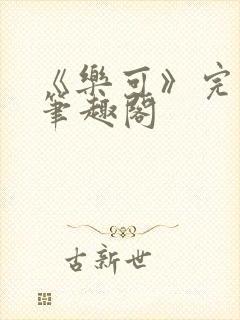 《樂可》完
筆趣閣
古新世